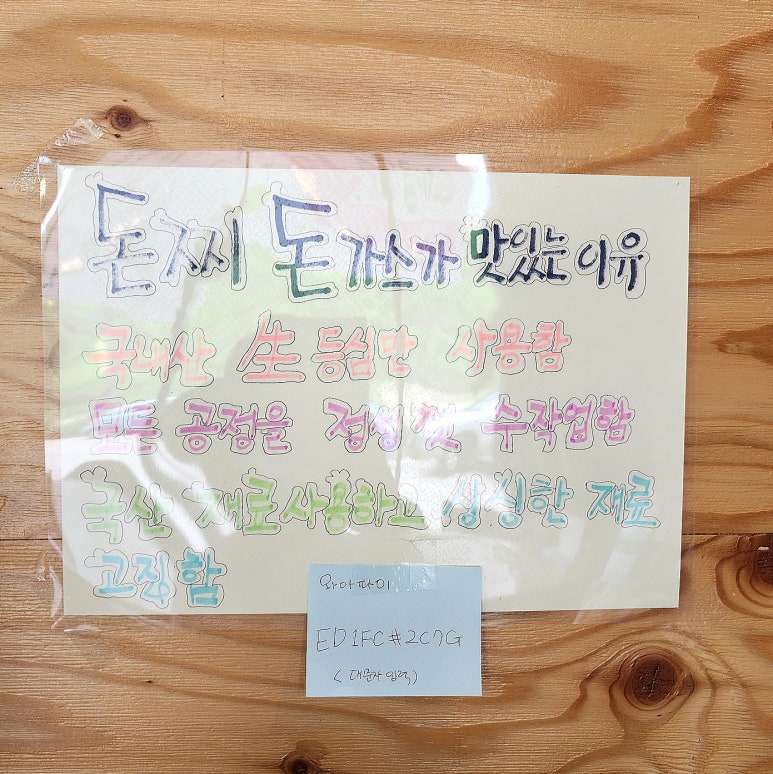 돈찌 돈가스가 맛있는 이유
국내산 生 등심만 사용함
모든 공정을 정성껏 수작업함
국산 재료사용하고 싱싱한 재료
고집함
와이파이
ED1FC#2C7G
(대문자 입력)